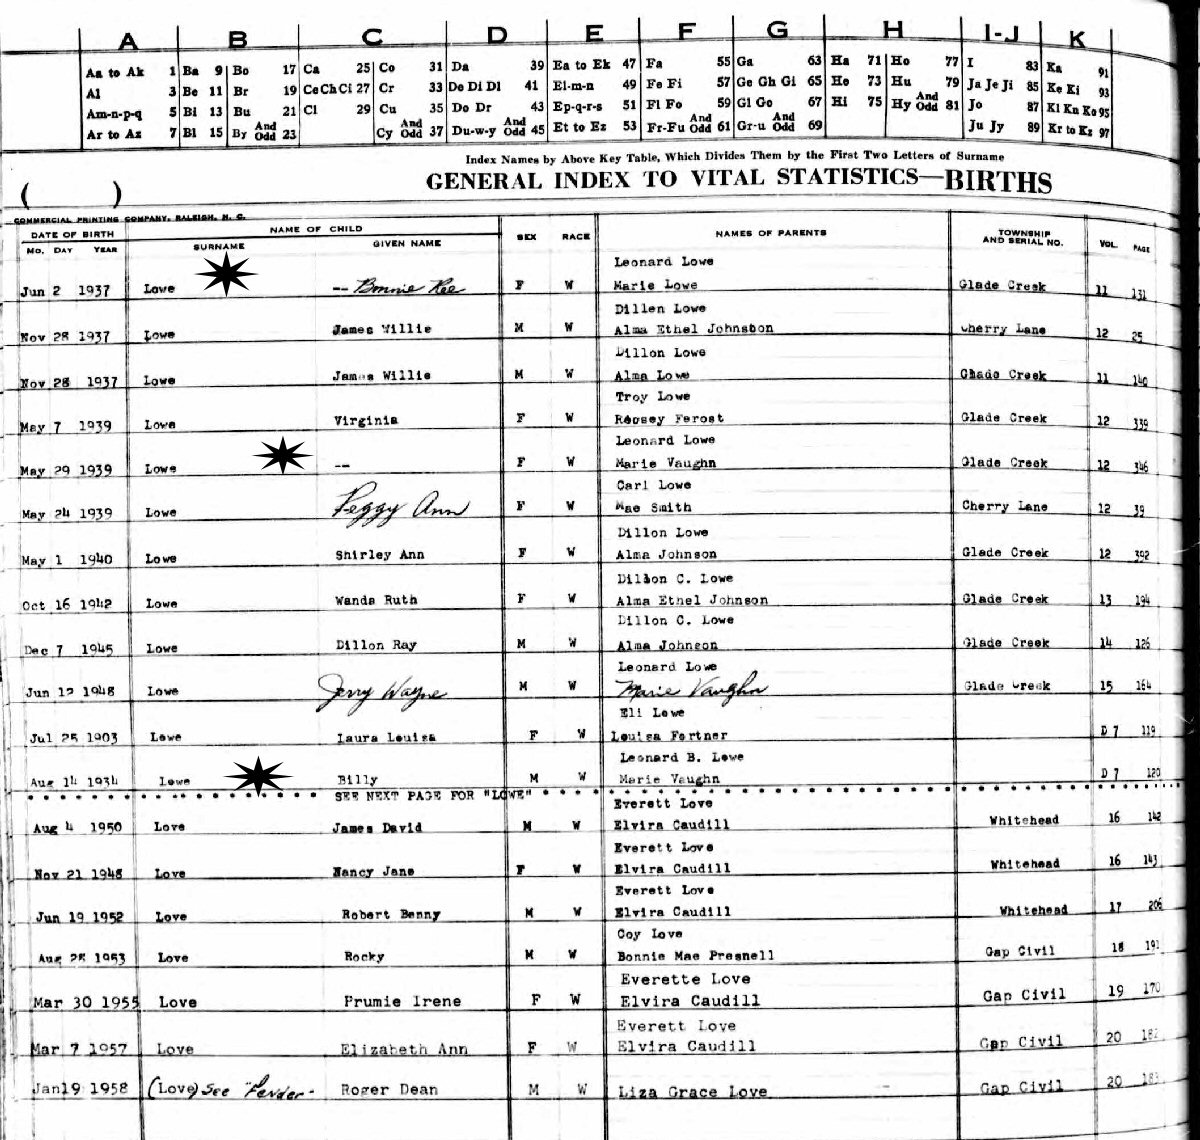 A B C D E F G H I-J K
Aa to Ak 1 Ba 9 Bo 17 Ca 25 Co 31 Da 39 Ea to Ek 47 Fa 55 Ga 63 Ha 71 Ho 77 I 83 Ka 91
Al 3 Be 11 Br 19 Ce Ch Ci 27 Cr 33 De Di Dl 41 El-m-n 49 Fe Fi 57 Ge Gh Gi 65 He 73 Hu 79 Ja Je Ji 85 Ke Ki 93
Am-n-p-q 5 Bi 13 Bu 21 Cl 29 Cu 35 Do Dr 43 Ep-q-r-s 51 Fl Fo 59 Gl Go 67 Hi 75 Hy And Odd 81 Jo 87 Kl Kn Ko 95
Ar to Az 7 Bl 15 By And Odd 23 Cy And Odd 37 Du-w-y And Odd 45 Et to Ez 53 Fr-Fu And Odd 61 Gr-u And Odd 69 Ju Jy 89 Kr to Kz 97
Index Names by Above Key Table, Which Divides Them by the First Two Letters of Surname
( ) GENERAL INDEX TO VITAL STATISTICS—BIRTHS
COMMERCIAL PRINTING COMPANY, RALEIGH, N. C.
DATE OF BIRTH NAME OF CHILD SEX RACE NAMES OF PARENTS TOWNSHIP AND SERIAL NO. VOL. PAGE
MO. DAY YEAR SURNAME GIVEN NAME
Leonard Lowe
Jun 2 1937 Lowe -- Bonnie Ree F W Marie Lowe Glade Creek 11 131
Dillen Lowe
Nov 28 1937 Lowe James Willie M W Alma Ethel Johnsbon Cherry Lane 12 25
Dillon Lowe
Nov 28 1937 Lowe James Willie M W Alma Lowe Glade Creek 11 140
Troy Lowe
May 7 1939 Lowe Virginia F W Ferost Glade Creek 12 339
Leonard Lowe
May 29 1939 Lowe -- F W Marie Vaughn Glade Creek 12 346
Carl Lowe
May 24 1939 Lowe Peggy Ann F W Mae Smith Cherry Lane 12 39
Dillon Lowe
May 1 1940 Lowe Shirley Ann F W Alma Johnson Glade Creek 12 392
Dillon C. Lowe
Oct 16 1942 Lowe Wanda Ruth F W Alma Ethel Johnson Glade Creek 13 194
Dillon C. Lowe
Dec 7 1945 Lowe Dillon Ray M W Alma Johnson Glade Creek 14 126
Leonard Lowe
Jun 12 1948 Lowe Jerry Wayne M W Marie Vaughn Glade Creek 15 164
Eli Lowe
Jul 25 1903 Lowe Laura Louisa F W Louisa Fortner D 7 119
Leonard B. Lowe
Aug 14 1934 Lowe Billy M W Marie Vaughn D 7 120
SEE NEXT PAGE FOR "LOWE"
Everett Love
Aug 4 1950 Love James David M W Elvira Caudill Whitehead 16 142
Everett Love
Nov 21 1948 Love Nancy Jane F W Elvira Caudill Whitehead 16 143
Everett Love
Jun 19 1952 Love Robert Benny M W Elvira Caudill Whitehead 17 206
Coy Love
Aug 28 1953 Love Rocky M W Bonnie Mae Presnell Gap Civil 18 191
Everette Love
Mar 30 1955 Love Prumie Irene F W Elvira Caudill Gap Civil 19 170
Everett Love
Mar 7 1957 Love Elizabeth Ann F W Elvira Caudill Gap Civil 20 182
Jan 19 1958 (Love) See "Pender- Roger Dean M W Liza Grace Love Gap Civil 20 183